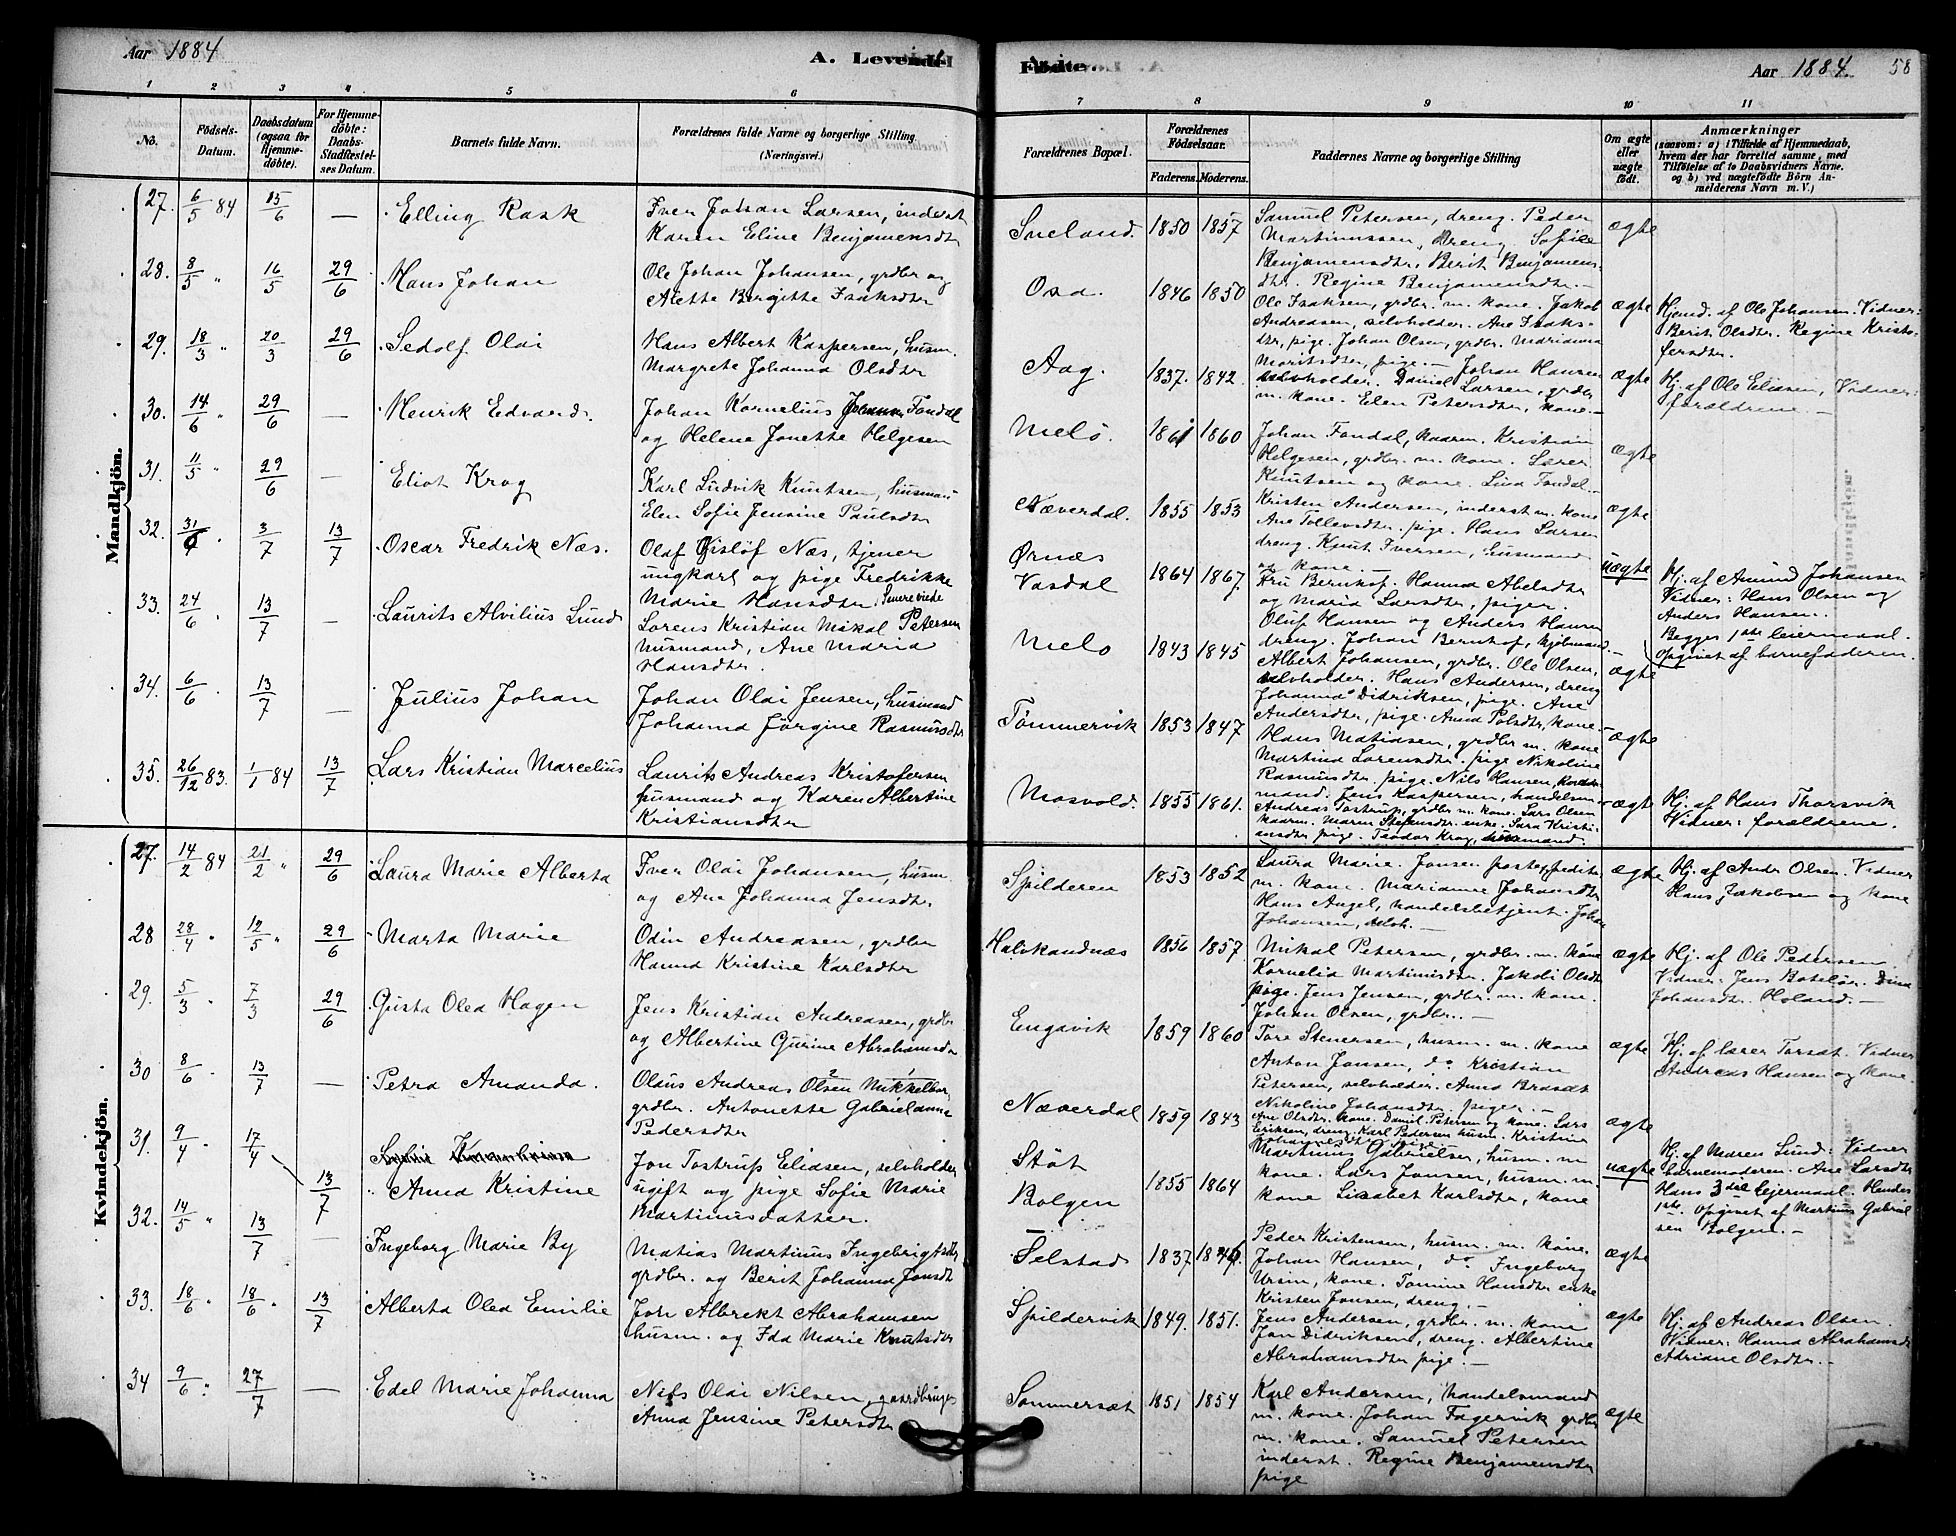 Aar 1884
A. Levende
Fødte.
Aar 1884.
58
1 2 3 4 5 6 7 8 9 10 11
No.
Fødsels-
Datum.
Daabsdatum
(ogsaa for
Hjemme-
døbte).
For Hjemme-
døbte:
Daabs-
Stadfæstel-
ses Datum.
Barnets fulde Navn.
Forældrenes fulde Navne og borgerlige Stilling.
(Næringsvei.)
Forældrenes Bopæl.
Forældrenes
Fødselsaar.
Faderens. Moderens.
Faddernes Navne og borgerlige Stilling
Om ægte
eller
uægte
født.
Anmærkninger
(saasom: a) i Tilfælde af Hjemmedaab,
hvem der har forrettet samme, med
Tilføielse af to Daabsvidners Navne.
og b) ved uægtefødte Børn An-
melderens Navn m. V.)
Mandkjön.
27. 6/5 84 15/6 — Elling Rask
Iver Johan Larsen, inderst
Karen Eline Benjamensdtr
1850 1857
Samuel Petersen, dreng. Peder
Martinussen, dreng. Sofie
Benjamensdtr, Berit Benjamens-
dtr. Regine Benjamensdtr.—
ægte
28. 8/5 " 16/5 29/6 Hans Johan
Ole Johan Johansen, grdbr og
Alette Bergitte Isaksdtr
Osa. 1846 1850
Ole Isaksen, grdbr. m. kone. Jakob
Andreasen, selvholder. Ane Isaks-
dtr, pige. Johan Olsen, grdbr. Marianna
Moritsdtr, pige.—
ægte
Hjemd. af Ole Johansen. Vidner:
Berit Olsdtr. Regine Kristo-
fersdtr.
29. 18/3 " 20/3 29/6 Sedolf Olai
Hans Albert Kaspersen, husm.
Margrete Johanna Olsdtr
Aag. 1837. 1842.
Johan Hansen
selvholder. Daniel Larsen, grdbr
m. kone. Elen Petersdtr, kone—
ægte
Hj. af Ole Eliasen, Vidner:
forældrene.—
30. 14/6 " 29/6 — Henrik Edvard
Johan Kornelius Fondal
og Helene Jonette Helgesen
Melö. 1861 1860
Johan Fondal, kaarm. Kristian
Helgesen, grdbr. m. kone. Lærer
Knutsen og kone. Lina Fondal—
ægte
31. 11/5 " 29/6 — Eliot Krog
Karl Ludvik Knutsen, husman
Elen Sofie Jensine Paulsdtr
Næverdal. 1855 1853
Kristen Andersen, inderst m. kone
Ane Tollevsdtr, pige. Hans Larsen
dreng. Knut Iversen, husmand
og kone.—
ægte
32. 3/7 13/7 Oscar Fredrik Næs.
Olaf Gislöf Næs, tjener
ungkarl og pige Fredrikke
Marie Hansdtr. Senere viede
Ørnæs
Vasdal 1864 1867.
Fru Bernhof. Hanna Abelsdtr
og Maria Larsdtr, piger.
Oluf Hansen og Anders Hansen
dreng. Johan Bernhof,
uægte
Hj. af Amund Johansen
Vidner: Hans Olsen og
Anders Hansen.
Begges 1ste leiermaal.
Opgivet af barnefaderen.
33. 24/6 " 13/7 — Laurits Alvilius Lund
Lorens Kristian Mikal Petersen
husmand, Ane Maria
Hansdtr.
Melö 1843 1845
Albert Johansen, grdbr. Ole Olsen,
selvholder. Hans Andersen, dreng
Johanna Didriksen, pige. Ane
Andersdtr, pige. Anna Polsdtr, kone—
ægte
34. 6/6 13/7 — Julius Johan
Johan Olai Jensen, husmand
Johanna Jörgine Rasmusdtr
Tömmervik 1853 1847
Hans Matiasen, grdbr m. kone
Martina Lorensdtr. pige Nikoline
Rasmusdtr. pige. Nils Hansen,
ægte
35. 26/12 83. 1/1 84 13/7 Lars Kristian Marcelius
Laurits Andreas Kristofersen
husmand og Karen Albertine
Kristiansdtr
Mosvold. 1855 1861.
Jens Kaspersen, handelsm—
Andreas Tostrup, grdbr m. kone. Lars Olsen
kaarm. Maren Stefensdtr. enke. Sara Kristi-
ansdtr pige. Teodor Krog, husmand.
ægte
Hj. af Hans Thorsvik
Vidner: forældrene.
Kvindekjön.
27. 14/2 84 21/2 " 29/6 Laura Marie Alberta
Iver Olai Johansen, husm.
og Ane Johanna Jensdtr.
Spilderen 1853 1852
Laura Marie. Jensen postexpeditr
m. kone. Marianne Johansdtr
Hans Angel, handelsbetjent. Johan
Johansen, selvh.—
ægte
Hj. af Andr Olsen. Vidner
Hans Jakobsen og kone
28 28/4 " 12/5 " 29/6 Marta Marie
Odin Andreasen, grdbr
Hanna Kristine Karlsdtr
Halvkandnæs 1856 1857
Mikal Petersen, grdbr. m. kone
Kornelia Martinisdtr. Jakobi Olsdtr
pige. Jens Jensen, grdbr. m. kone.
Johan Olsen, grdbr..—
ægte
Hj. af Ole Pedersen
Vidner: Jens Botelör. Dina
Johansdtr. Holand.—
29. 5/3 " 7/3 29/6 Gusta Olea Hagen
Jens Kristian Andreasen, grdbr
og Albertine Gurine Abrahamsdtr
Engavik 1859 1860
Tore Stenersen, husm. m. kone
Anton Jensen, do. Kristian
Petersen, selvholder. Anna
Nikoline Johansdtr, piger.—
ægte
Hj. af lærer Torsat. Vidner
Andreas Hansen og kone.
30 8/6 " 13/7 — Petra Amanda.
Olaus Andreas Olsen Mikkelbor,
grdbr. Antonette Gabrielanne
Pedersdtr
Næverdal 1859 1843
Ane Olsdtr. kone. Daniel Petersen og kone. Lars
Eriksen, dreng. Karl Pedersen husm. Kristine
ægte
31. 9/4 " 17/4 13/7 Anna Kristine
Jon Tostrup Eliasen, selvholder
ugift og pige Sofie Marie
Martinusdatter.
Stöt
Bolgen 1855 1864
Martinus Gabrielsen, husm. m
kone. Lars Jensen, husm. m.
kone Lisabet Karlsdtr, kone
uægte
Hj. af Maren Lund. Vidner
barnemoderen. Ane Larsdtr
Hans 3die leiermaal. Hendes
1ste. Opgivet af Martinus Gabriel
sen Bolgen.—
32. 14/5 " 13/7 — Ingeborg Marie By
Matias Martinus Ingebrigtsdtr
grdbr. og Berit Johanna Jonsdt
Selstad 1837
Peder Kristensen, husm. m. kone.
Johan Hansen, do Ingeborg
Ursin, kone. Tomine Hansdtr enke
Kristen Jensen, dreng.—
ægte
33. 18/6 " 18/6 " 13/7 Alberta Olea Emilie
Jon Albrekt Abrahamsen
husm. og Ida Marie Knutsdtr
Spildervik 1849. 1851.
Jens Andersen, grdbr. m. kone
Jon Didriksen, dreng. Albertine
Abrahamsdtr pige.—
ægte
Hj. af Andreas Olsen.
Vidner: Hanna Abrahamsdt
Adriane Olsdtr.—
34 9/6 " 27/7 — Edel Marie Johanna
Nils Olai Nilsen, gaardbruger
Anna Jensine Petersdtr
Sommersæt 1851 1854
Karl Andersen, handelsmand
m. kone. Johan Fagervik grdbr
m. kone. Samuel Petersen
inderst. Regine Benjamensdtr
pige
ægte